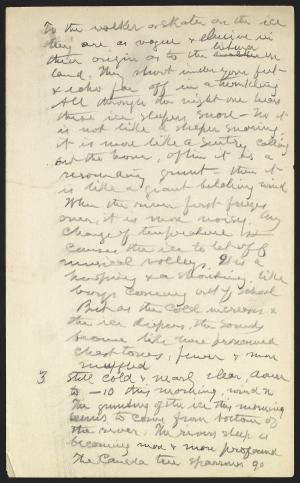 To the walker or skater on the ice
they are as vague & elusive in
their origin as to the listener
land. They shoot under your feet
& echo far off in a
All through the night one hears
these ice sleepers snore - No it
is not like a sleeper snoring,
it is more like a sentry calling
out the hour, often it is a
resounding grunt - then it
is like a giant belching wind
When the river first freezes
over, it is more noisy. Any
change of temperature
causes the ice to let off a
musical volley, It is a
whooping & a shouting like
boys coming out of school
But as the cold increases &
the ice deepens, the sounds
become like more profound
chest tones, fewer & more
muffled
3 Still cold & nearly clear, down
to -10 this morning, wind N
The grunting of the ice this morning
seems to come from bottom of
the river. The rivers sleep is
becoming more & more profound
The Canada tree sparrows go